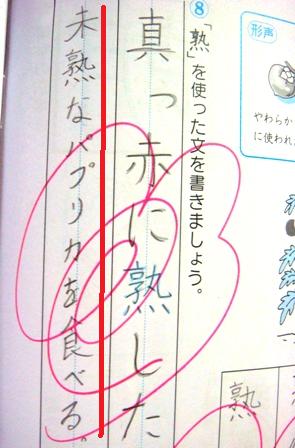 形声
やわらか
に使われ
⑧「熟」を使った文を書きましょう。
熟
真っ赤に熟した
未熟なパプリカを食べる。